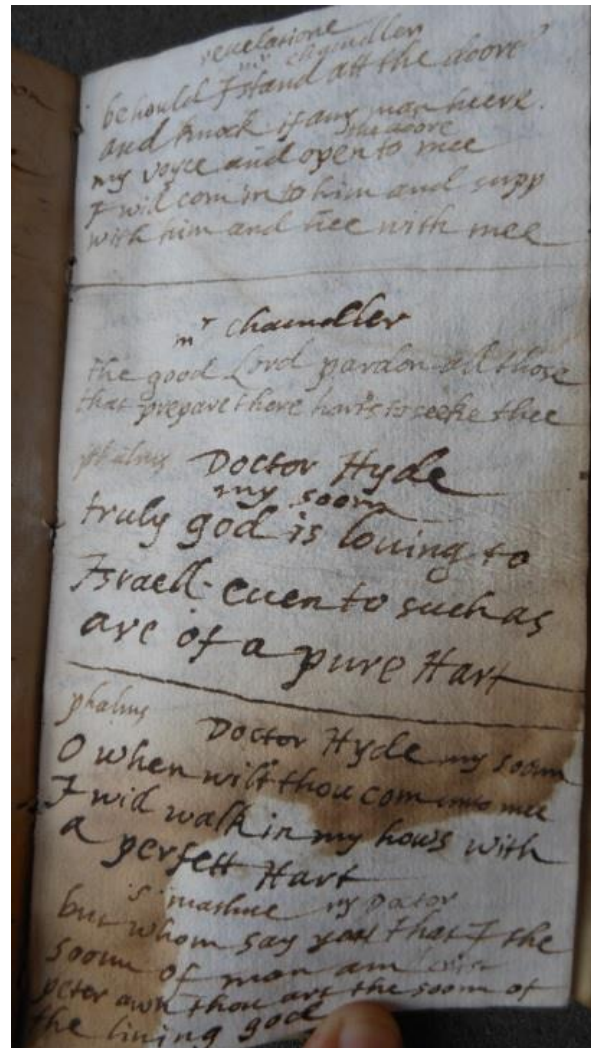 reuelatione
mr chaundler
behould I stand att the doore
and knock if any man heere
my voyce and open the doore to mee
I will com in to him and supp
with him and hee with mee
mr chaundller
the good Lord pardon all those
that prepare there harts to seeke thee
phalms Doctor Hyde
my soom
truly god is louing to
Israell euen to such as
are of a pure Hart
phalms Doctor Hyde my soom
O when wilt thou com unto mee
I will walk in my hows with
a perfett Hart
s mathue my Doctor
but whom say you that I the
soom of man am
peter awn thou art the soom of
the liuing god